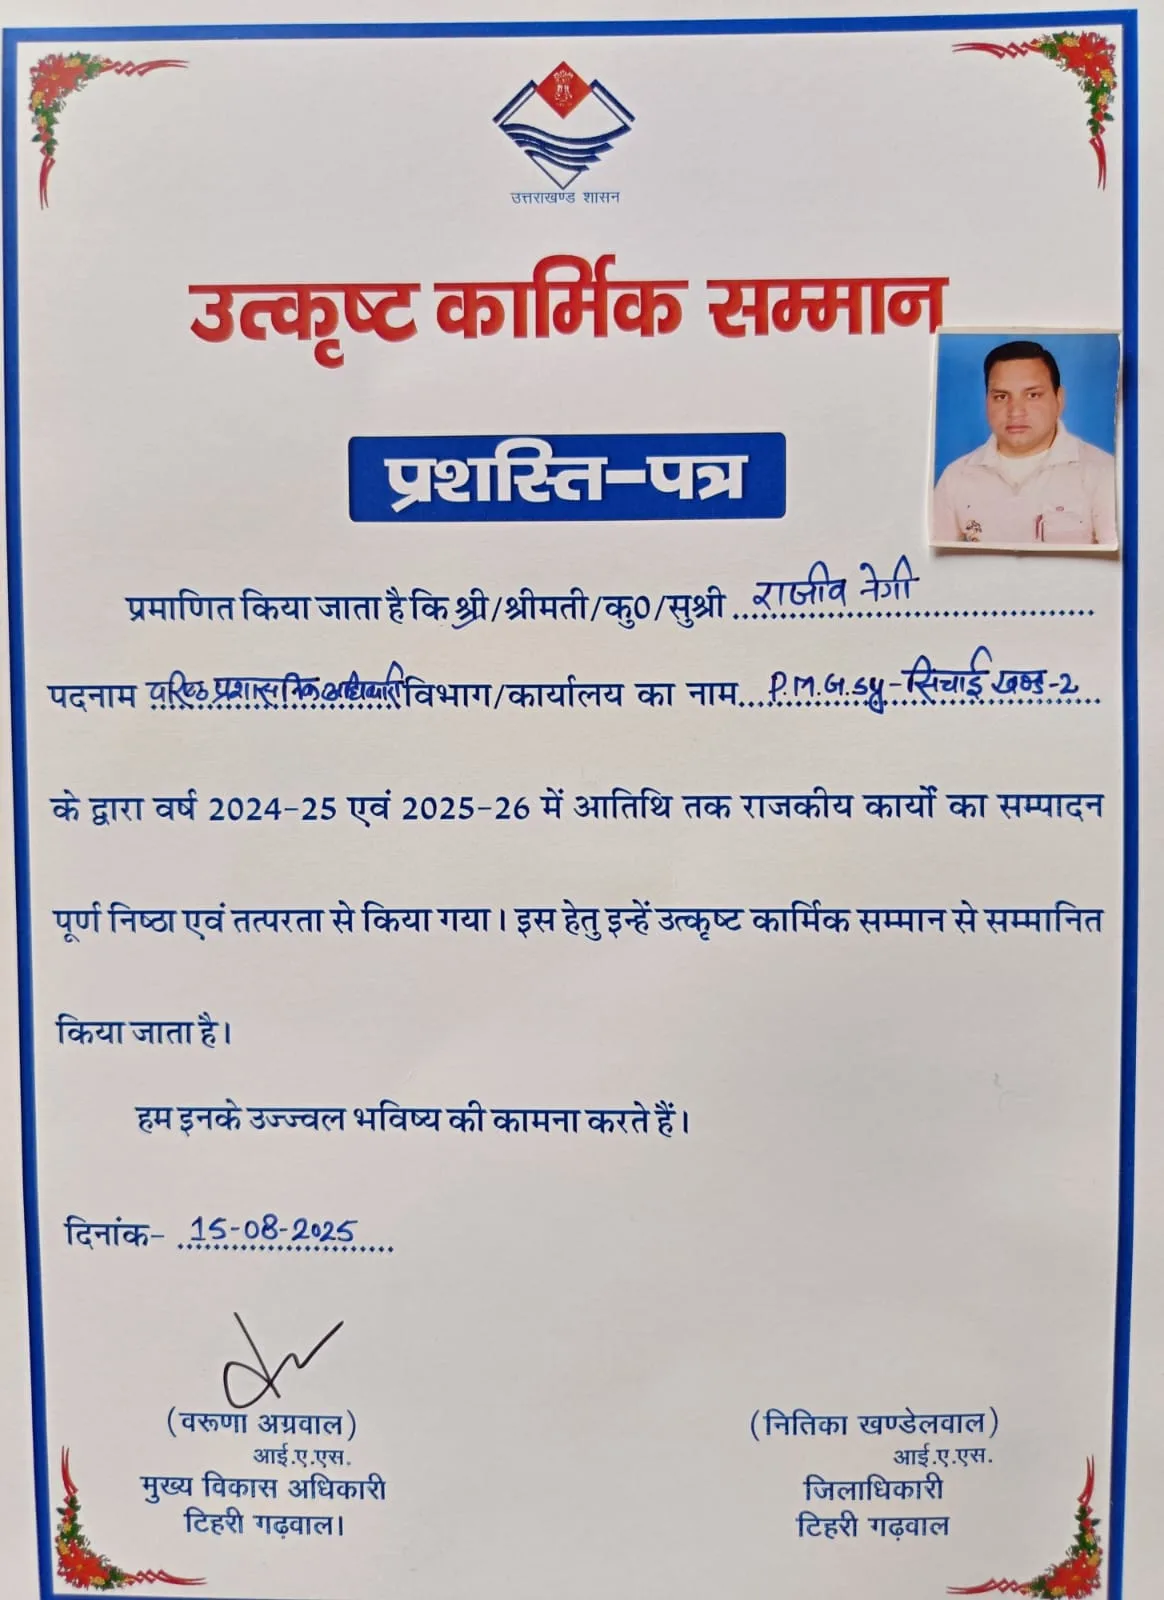 उत्तराखण्ड शासन
उत्कृष्ट कार्मिक सम्मान
प्रशस्ति-पत्र
प्रमाणित किया जाता है कि श्री/श्रीमती/कु0/सुश्री राजीव नेगी
पदनाम वरिष्ठ प्रशासनिक अधिकारी विभाग/कार्यालय का नाम P.M.G.Sy-सिंचाई खण्ड-2
के द्वारा वर्ष 2024-25 एवं 2025-26 में आतिथि तक राजकीय कार्यों का सम्पादन
पूर्ण निष्ठा एवं तत्परता से किया गया। इस हेतु इन्हें उत्कृष्ट कार्मिक सम्मान से सम्मानित
किया जाता है।
हम इनके उज्ज्वल भविष्य की कामना करते हैं।
दिनांक- 15-08-2025
(वरूणा अग्रवाल) (नितिका खण्डेलवाल)
आई.ए.एस. आई.ए.एस.
मुख्य विकास अधिकारी जिलाधिकारी
टिहरी गढ़वाल। टिहरी गढ़वाल